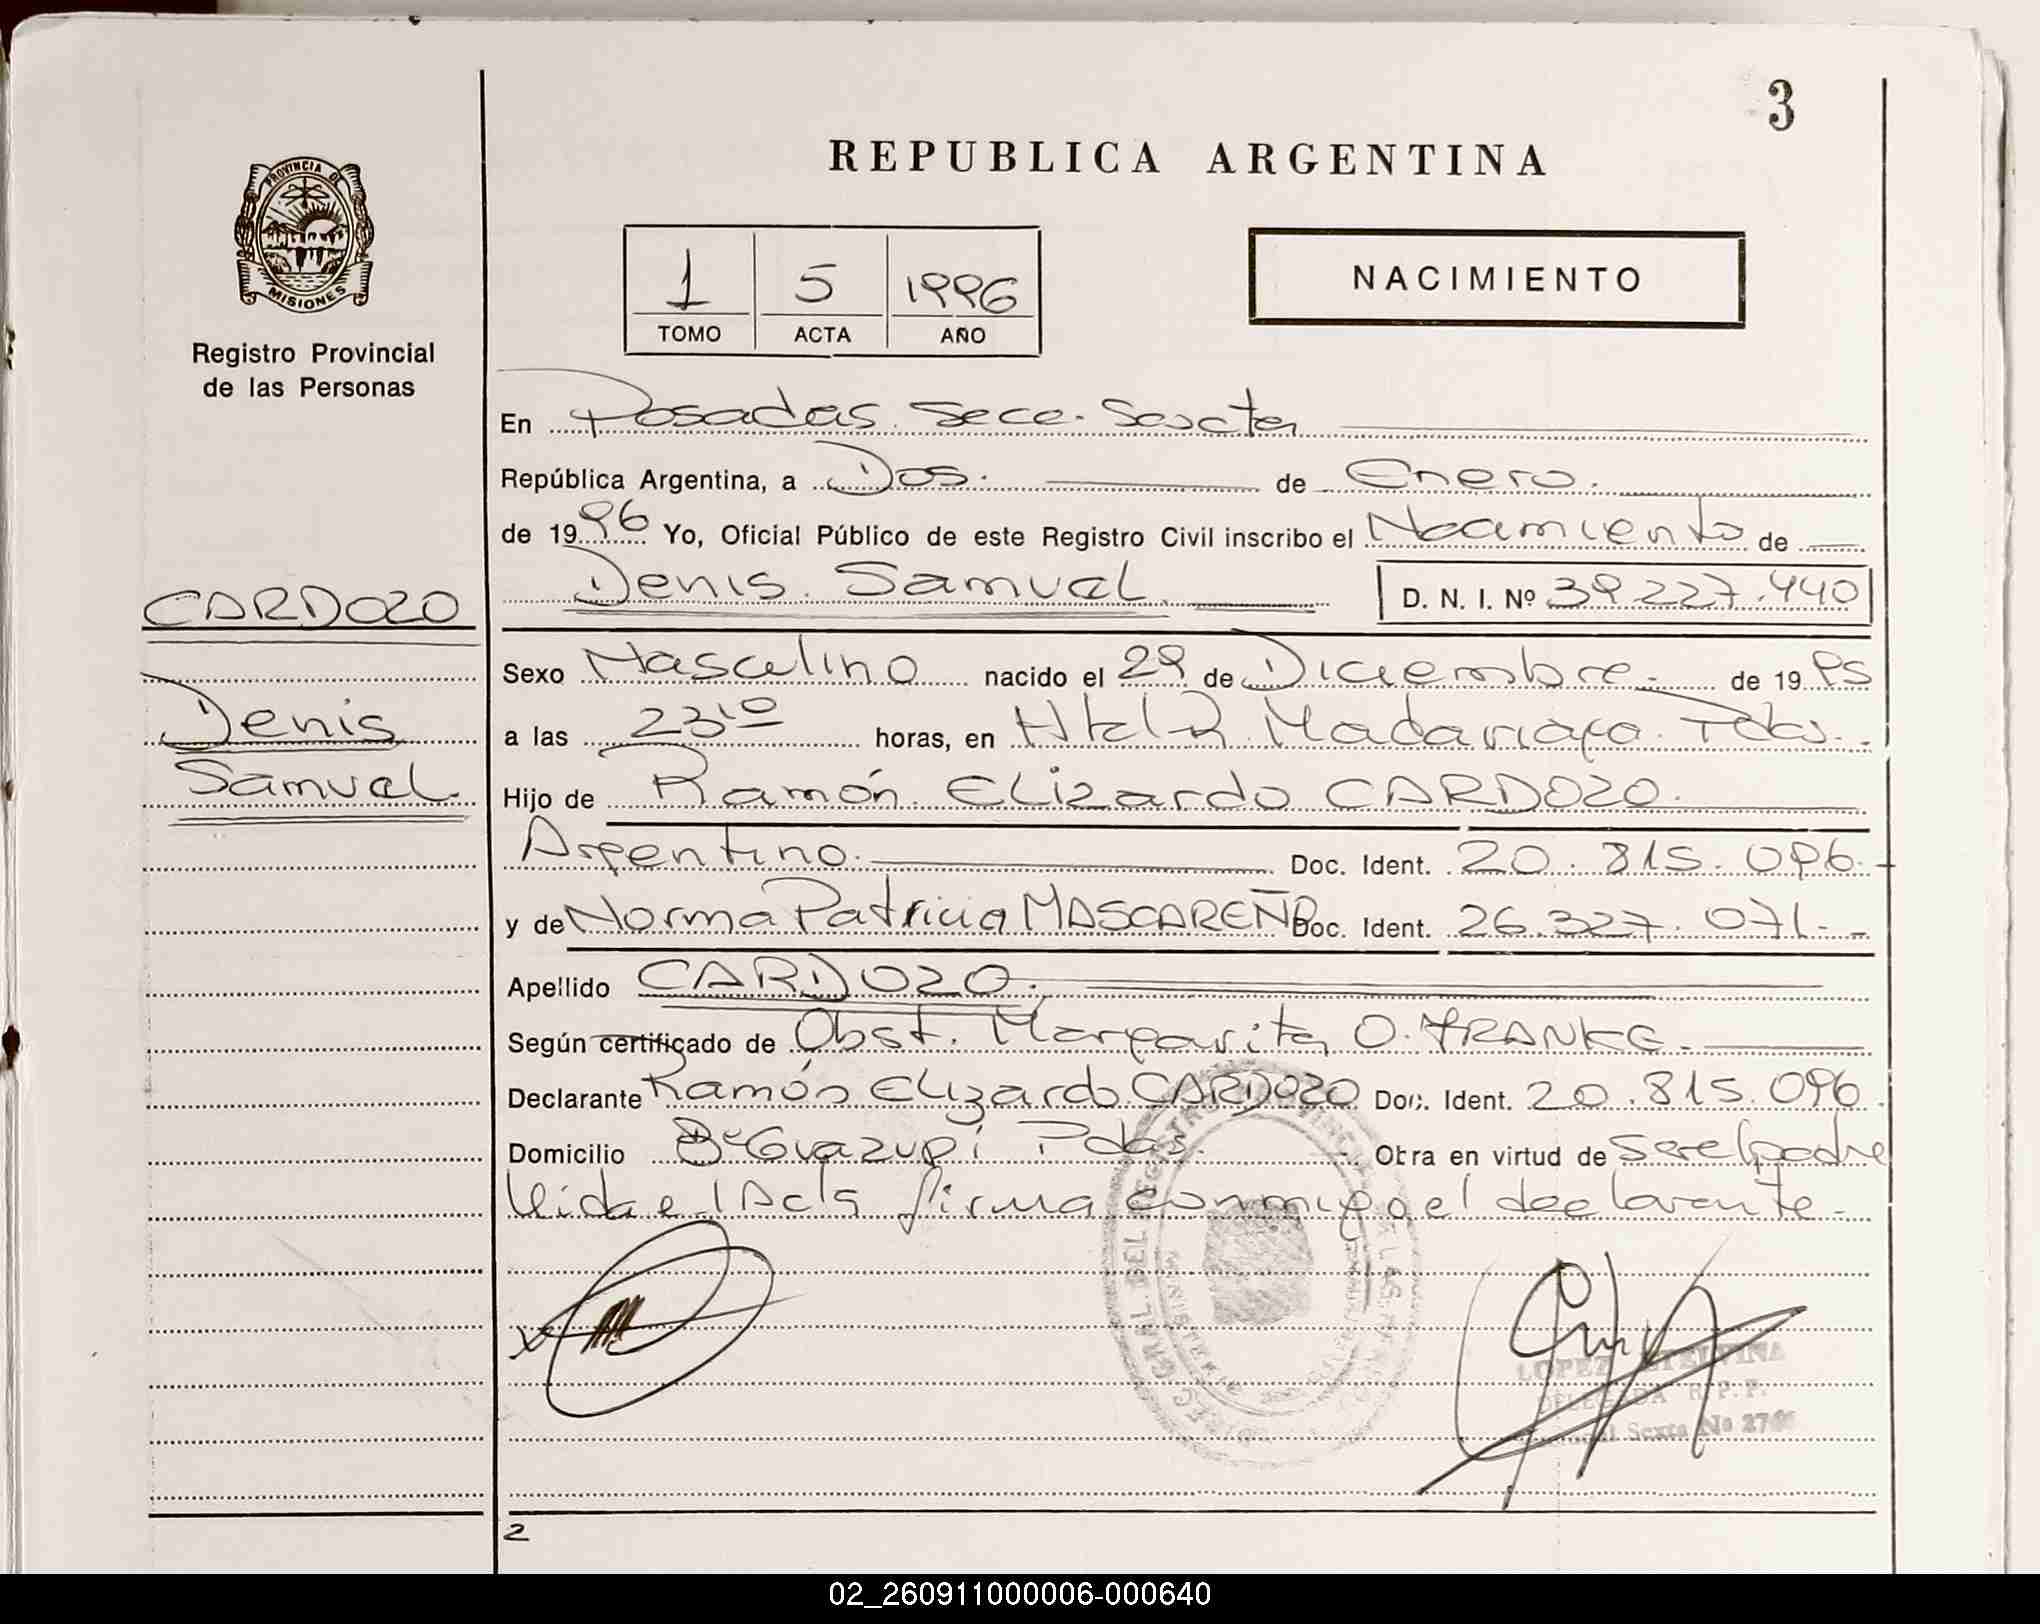 3
REPUBLICA ARGENTINA
PROVINCIA DE
MISIONES
Registro Provincial
de las Personas
1 5 1996
TOMO ACTA AÑO
NACIMIENTO
En Posadas Secc. Sexta
República Argentina, a Dos. de Enero.
de 1996 Yo, Oficial Público de este Registro Civil inscribo el Nacimiento de
Denis Samuel D. N. I. Nº 39.227.440
CARDOZO
Denis
Samuel.
Sexo Masculino nacido el 29 de Diciembre. de 1995
a las 23:10 horas, en Madariaga Pdas.
Hijo de Ramón Elizardo CARDOZO.
Argentino. Doc. Ident. 20.815.096.
y de Norma Patricia MASCAREÑO Doc. Ident. 26.327.071.-
Apellido CARDOZO.
Según certificado de Obst. Margarita O. FRANKE.
Declarante Ramón Elizardo CARDOZO Doc. Ident. 20.815.096.
Domicilio Bº Guazupi Pdas. Obra en virtud de ser el padre
leida el Acta firma conmigo el declarante.
LOPEZ ETELVINA
DELEGADA R. P. P.
Sexta Nº
2
02_260911000006-000640